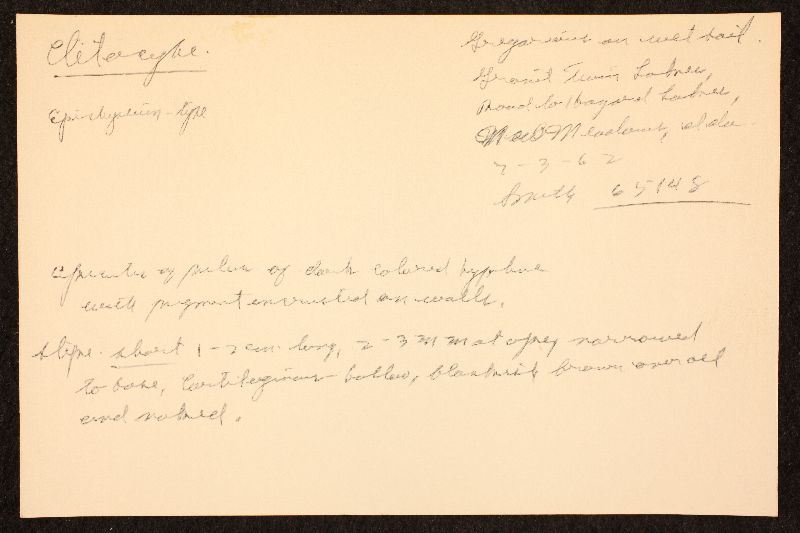 Clitocybe.
epichysium-type
Gregarious on wet soil.
Granit Twin Lakes,
Road to Hazard Lakes,
Meadows, Idaho.
7-3-62
Smith 65148
of pileus of dark colored hyphae
with pigment encrusted on walls.
stipe short 1-2 cm long, 2-3 mm at apex, narrowed
to base, cartilaginous-hollow, blackish brown over all
and naked.